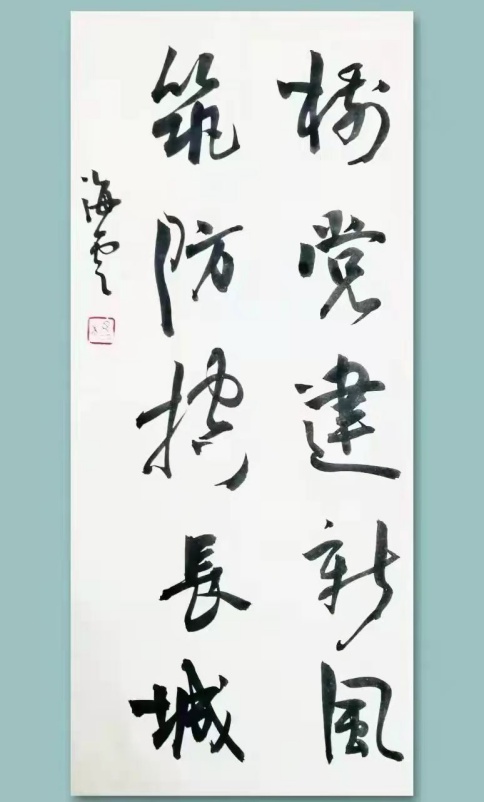 樹党建新風
筑防控長城
海雲